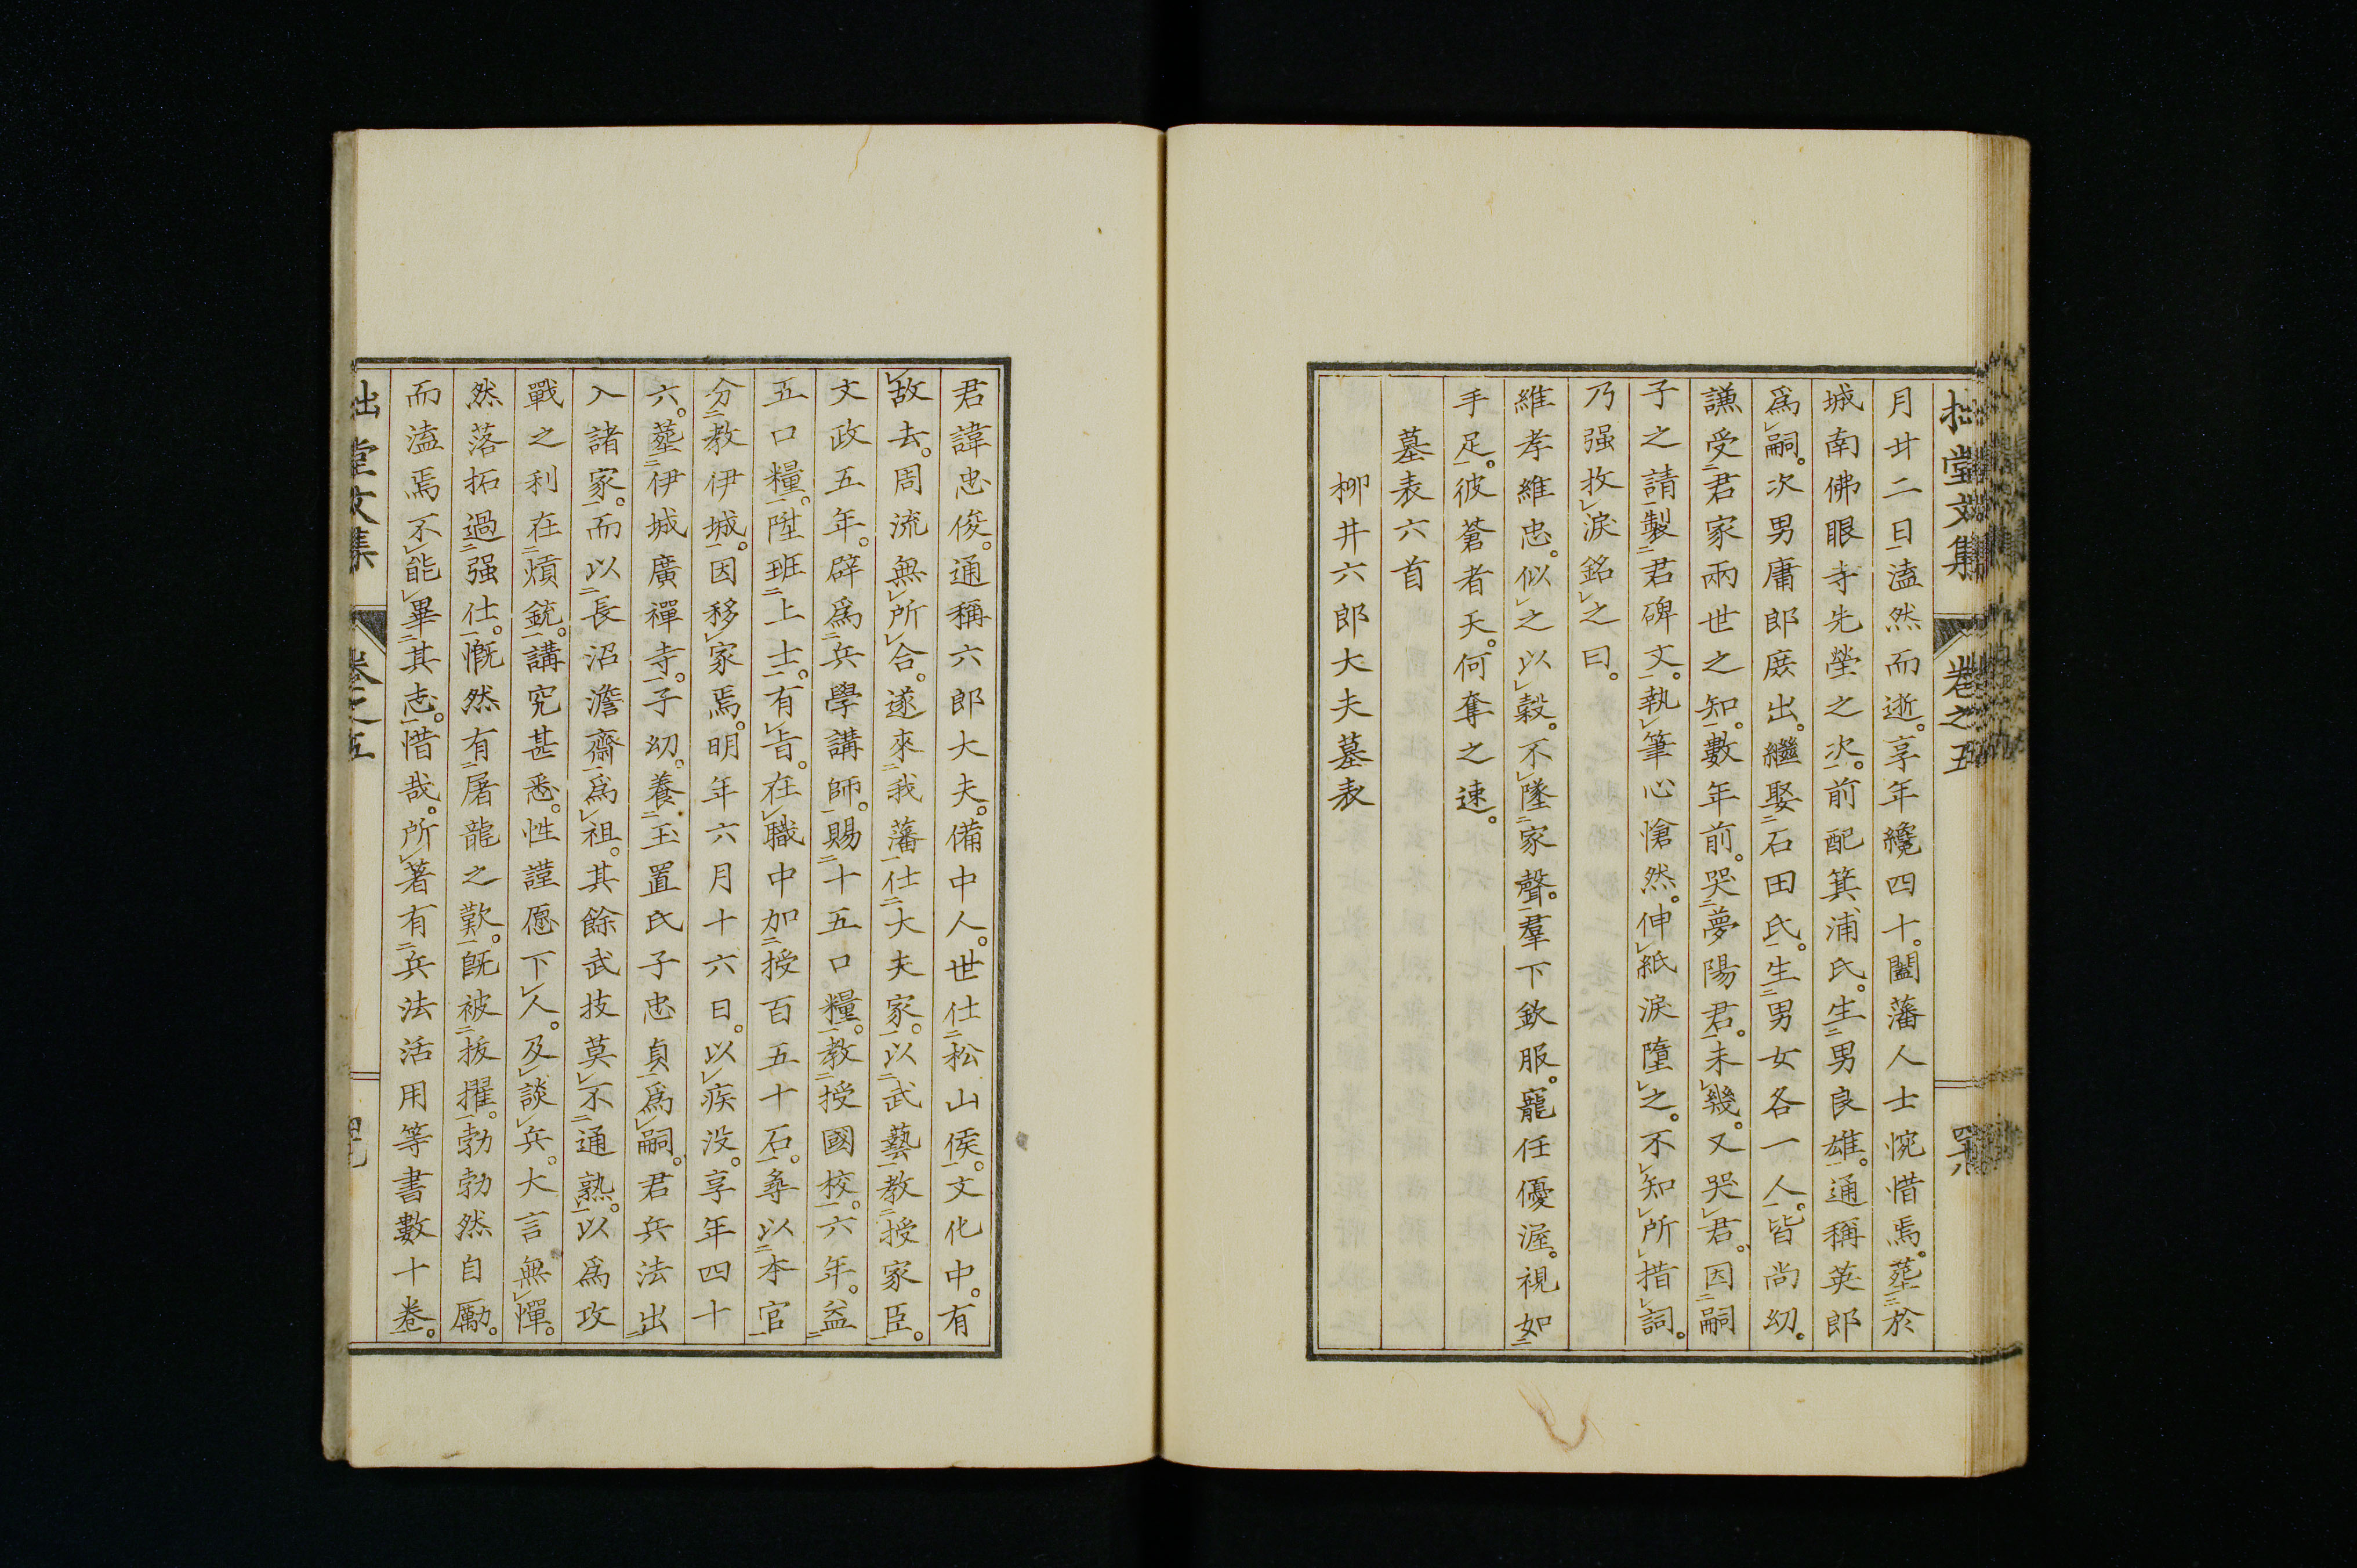 拙堂文集 卷之五 四十八
月廿二日溘然而逝。享年纔四十。闔藩人士惋惜焉。葬於
城南佛眼寺先塋之次。前配箕浦氏。生男良雄。通稱英郎
爲嗣。次男庸郎庶出。繼娶石田氏。生男女各一人。皆尚幼。
謙受君家兩世之知。數年前。哭夢陽君。未幾。又哭君。因嗣
子之請製君碑文。執筆心愴然。伸紙淚墮之。不知所措詞。
乃强抆淚銘之曰。
維孝維忠。似之以穀。不墜家聲。羣下欽服。寵任優渥。視如
手足。彼蒼者天。何奪之速。
墓表六首
柳井六郎大夫墓表
君諱忠俊。通稱六郎大夫。備中人。世仕松山侯。文化中。有
故去。周流無所合。遂來我藩仕大夫家。以武藝教授家臣。
文政五年。辟爲兵學講師。賜十五口糧。教授國校。六年。益
五口糧。陞班上士。有旨。在職中加授百五十石。尋以本官
分教伊城。因移家焉。明年六月十六日。以疾没。享年四十
六。葬伊城廣禪寺。子幼。養玉置氏子忠貞爲嗣。君兵法出
入諸家。而以長沼澹齋爲祖。其餘武技莫不通熟。以爲攻
戰之利在熕銃。講究甚悉。性謹愿下人。及談兵。大言無憚。
然落拓過强仕。慨然有屠龍之歎。既被拔擢。勃勃然自勵。
而溘焉不能畢其志。惜哉。所著有兵法活用等書數十卷。
拙堂文集 卷之五